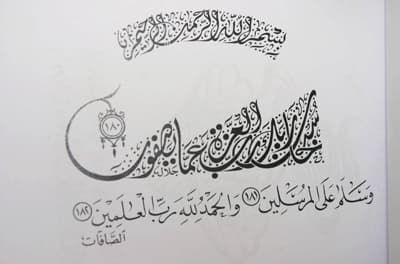 بسم الله الرحمن الرحيم
سبحان ربك رب العزة عما يصفون ١٨٠
وَسَلَٰمٌ عَلَى الْمُرْسَلِينَ ١٨١ وَالْحَمْدُ لِلَّهِ رَبِّ الْعَٰلَمِينَ ١٨٢
الصَّافَات